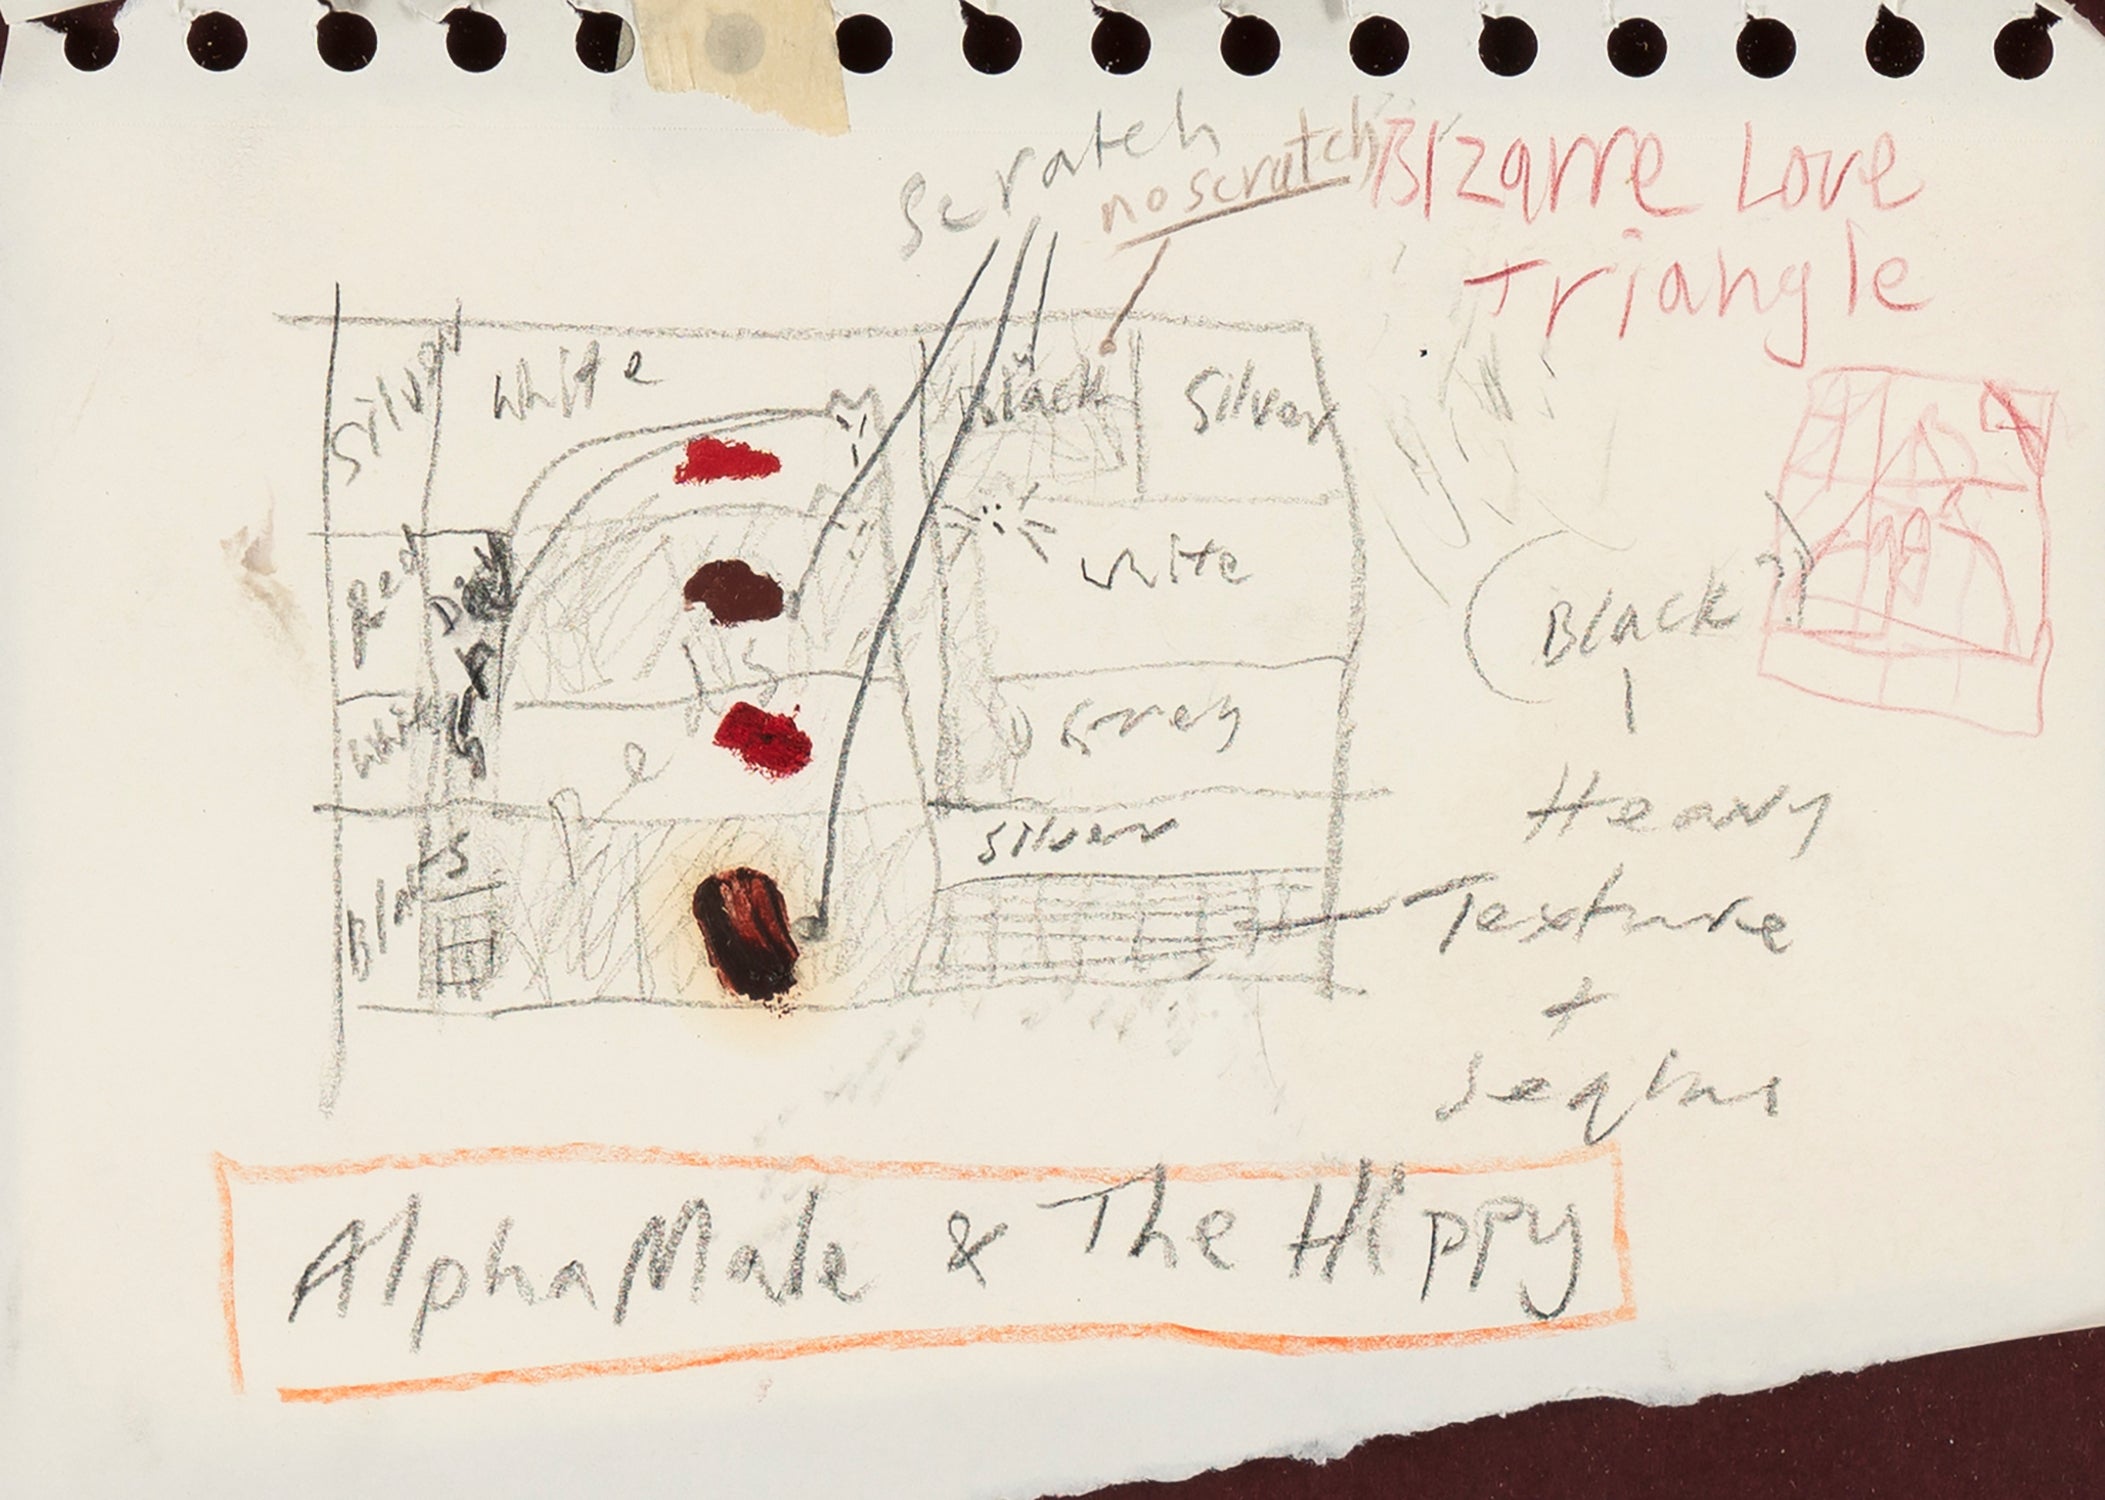 Scratch
no scratch
Bizarre Love
Triangle
Silver
White
Black
Silver
Red
White
(Black?)
White
Grey
Heavy
Silver
Black
S
Texture
+
Sequins
Reds
Alpha Male & The Hippy